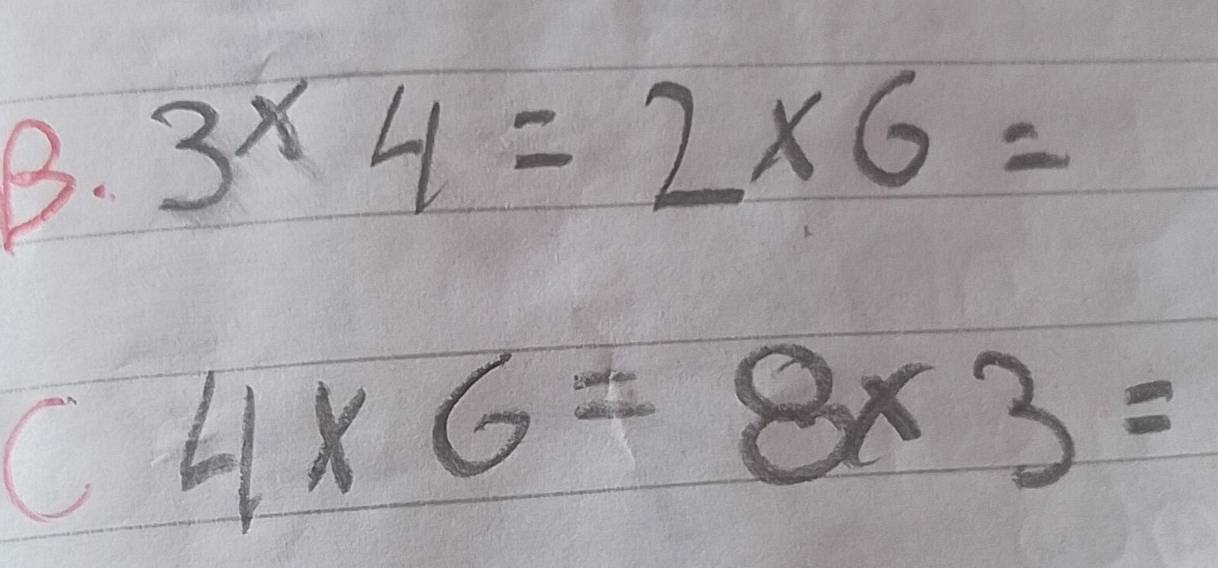 B. 3 × 4 = 2 × 6 =
C 4 × 6 = 8 × 3 =